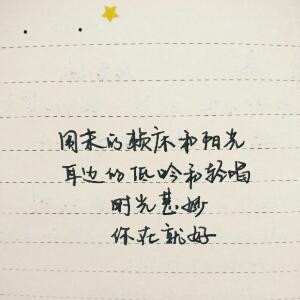 周末的赖床和阳光
耳边的低吟和轻唱
时光甚妙
你在就好